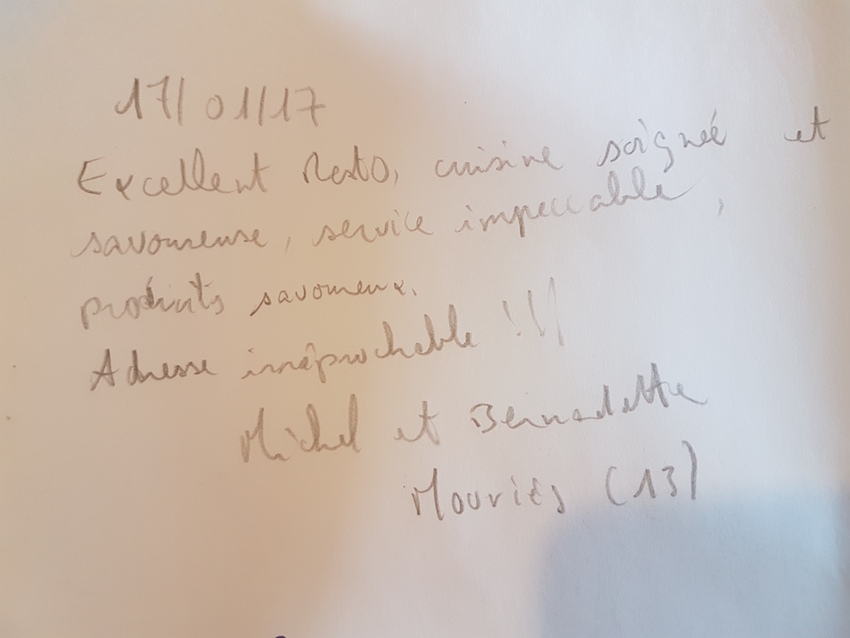 17/01/17
Excellent Resto, cuisine soignée et
savoureuse, service impeccable,
produits savoureux.
Adresse irréprochable !!!
Michel et Bernadette
Mouriès (13)